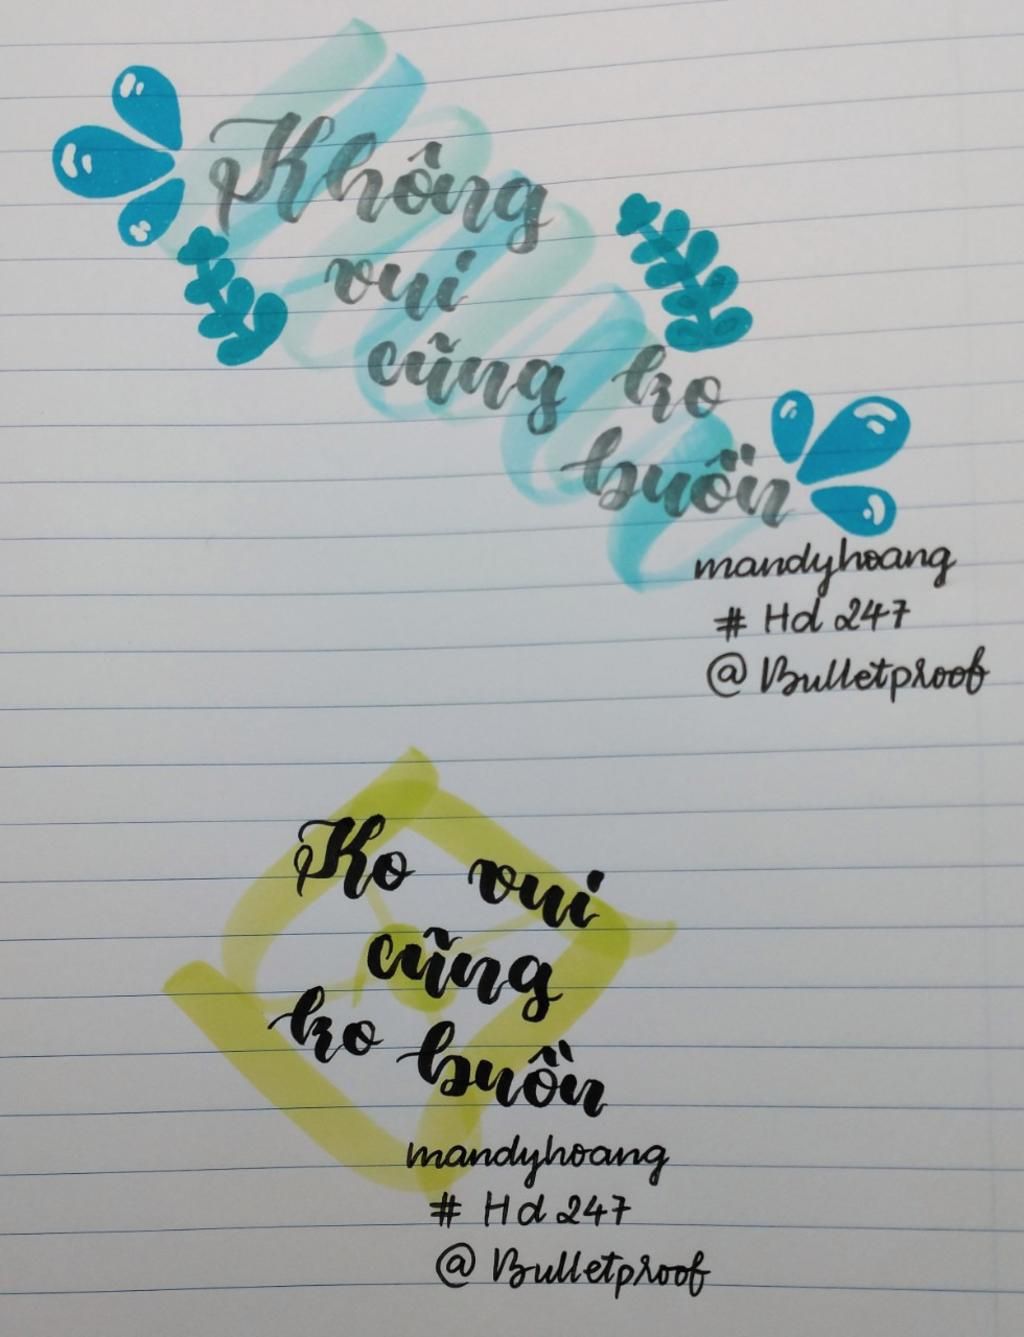 Không
vui
cũng ko
buồn
mandyhoang
# Hd 247
@Bulletproof
Ko vui
cũng
ko buồn
mandyhoang
# Hd 247
@Bulletproof